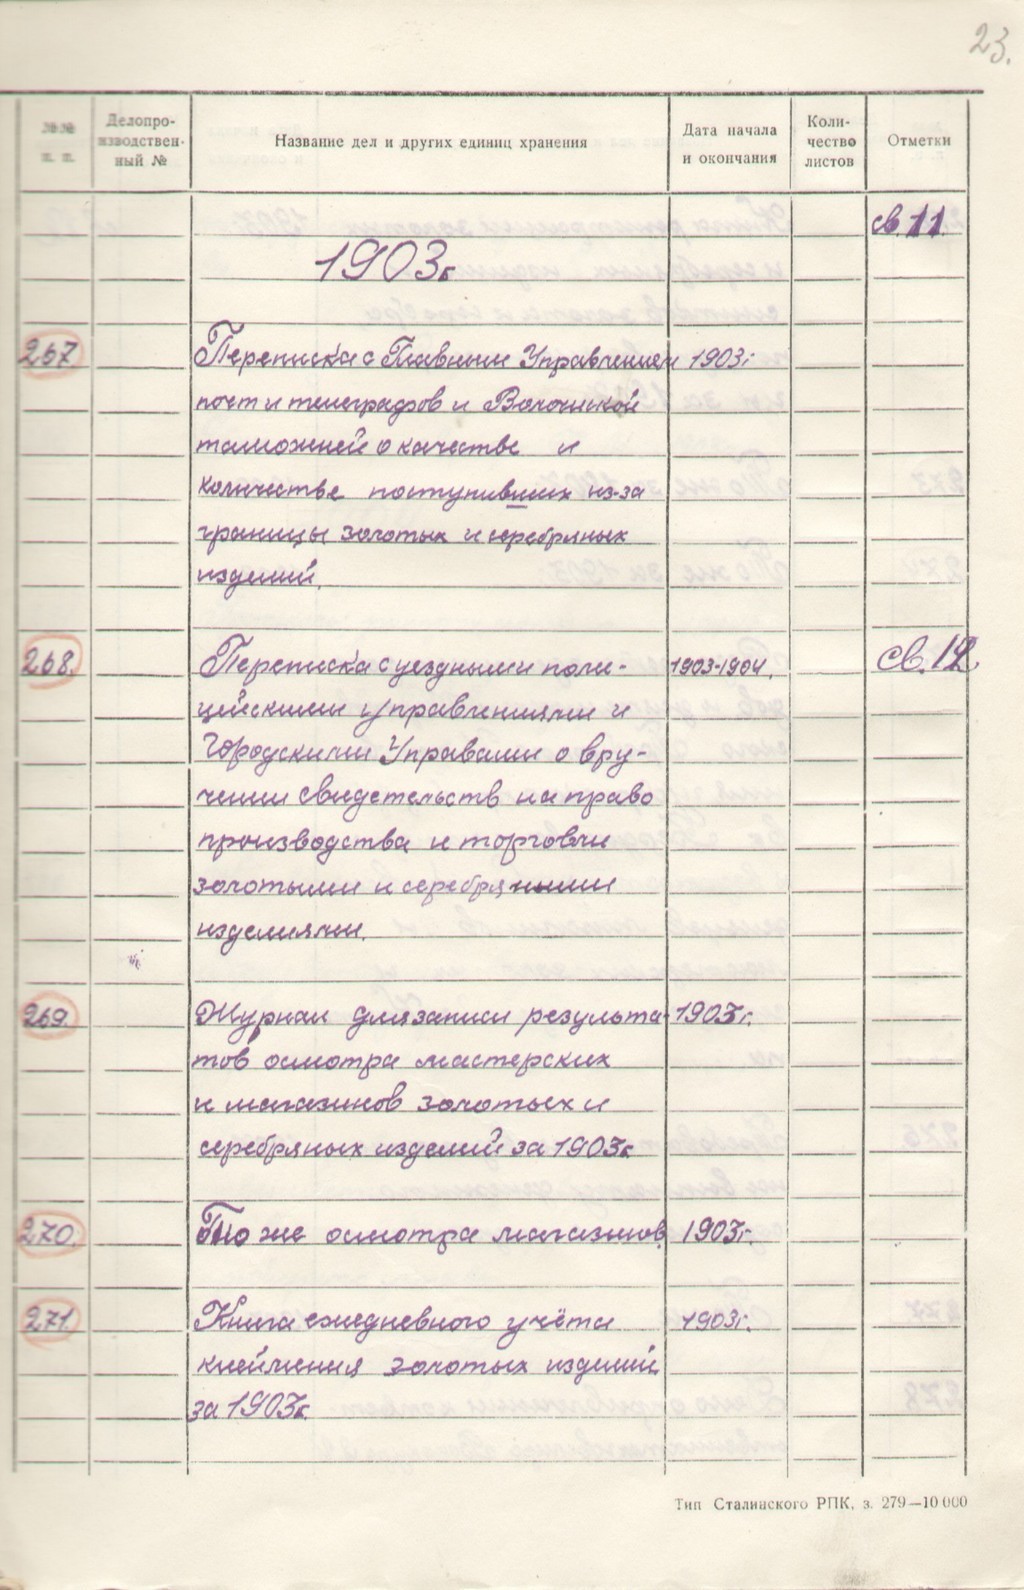 23.
№№ п. п.
Делопро-
изводствен-
ный №
Название дел и других единиц хранения
Дата начала
и окончания
Коли-
чество
листов
Отметки
св. 11.
1903г.
267. Переписка с Главным Управлением 1903г.
почт и телеграфов и Волочиской
таможней о качестве и
количестве поступивших из-за
границы золотых и серебряных
изделий.
268. Переписка с уездными поли- 1903-1904. св. 12.
цейскими управлениями и
Городскими Управами о вру-
чении свидетельств на право
производства и торговли
золотыми и серебряными
изделиями.
269. Журнал для записи результа- 1903г.
тов осмотра мастерских
и магазинов золотых и
серебряных изделий за 1903г.
270. То же осмотра магазинов. 1903г.
271. Книга ежедневного учёта 1903г.
клеймения золотых изделий
за 1903г.
Тип Сталинского РПК, з. 279—10 000